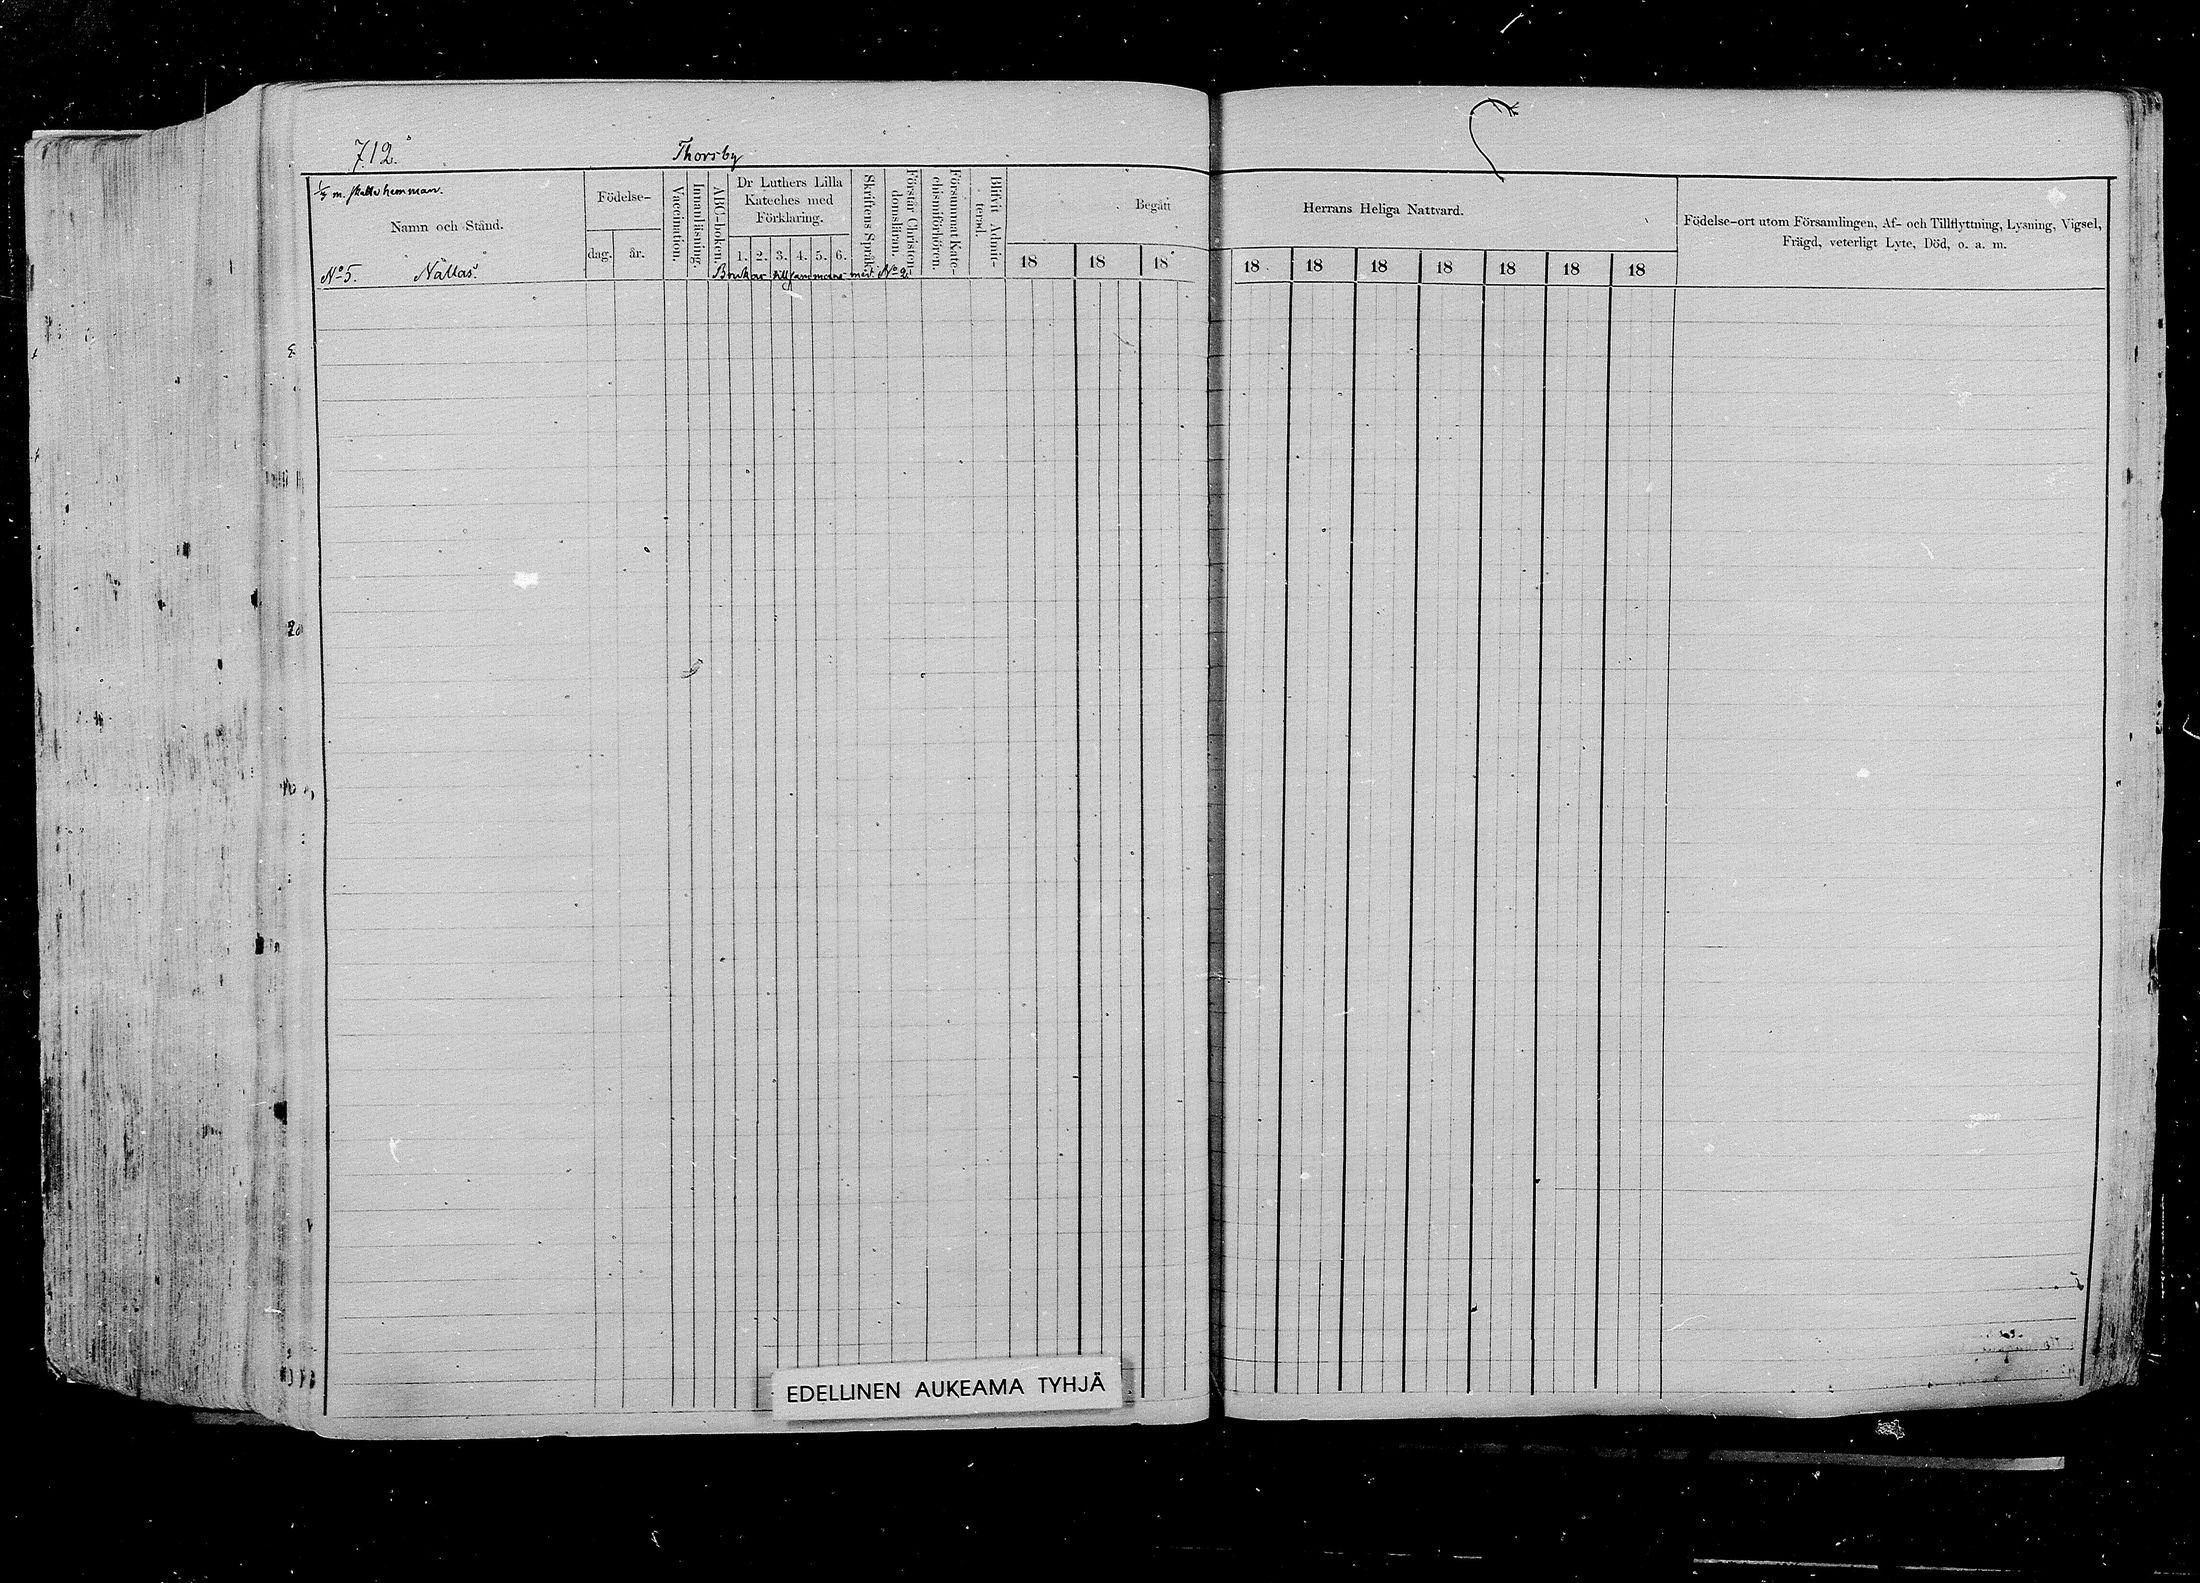 712.
Thorsby
m. skatte hemman.
Namn och Stånd.
Födelse-
dag.
år.
Vaccination.
Innanläsning.
ABC-boken.
Dr Luthers Lilla
Kateches med
Förklaring.
1. 2. 3. 4. 5. 6.
Skriftens Språk.
Förstår Christen-
domsläran.
Försummat Kate-
chismiförhören.
Blifvit Admit-
terad.
Begått
18 18 18
Herrans Heliga Nattvard.
18 18 18 18 18 18 18
Födelse-ort utom Församlingen, Af- och Tillflyttning, Lysning, Vigsel,
Frägd, veterligt Lyte, Död, o. a. m.
No 5. Nällas Brukas tillsammans med No 2.
EDELLINEN AUKEAMA TYHJÄ